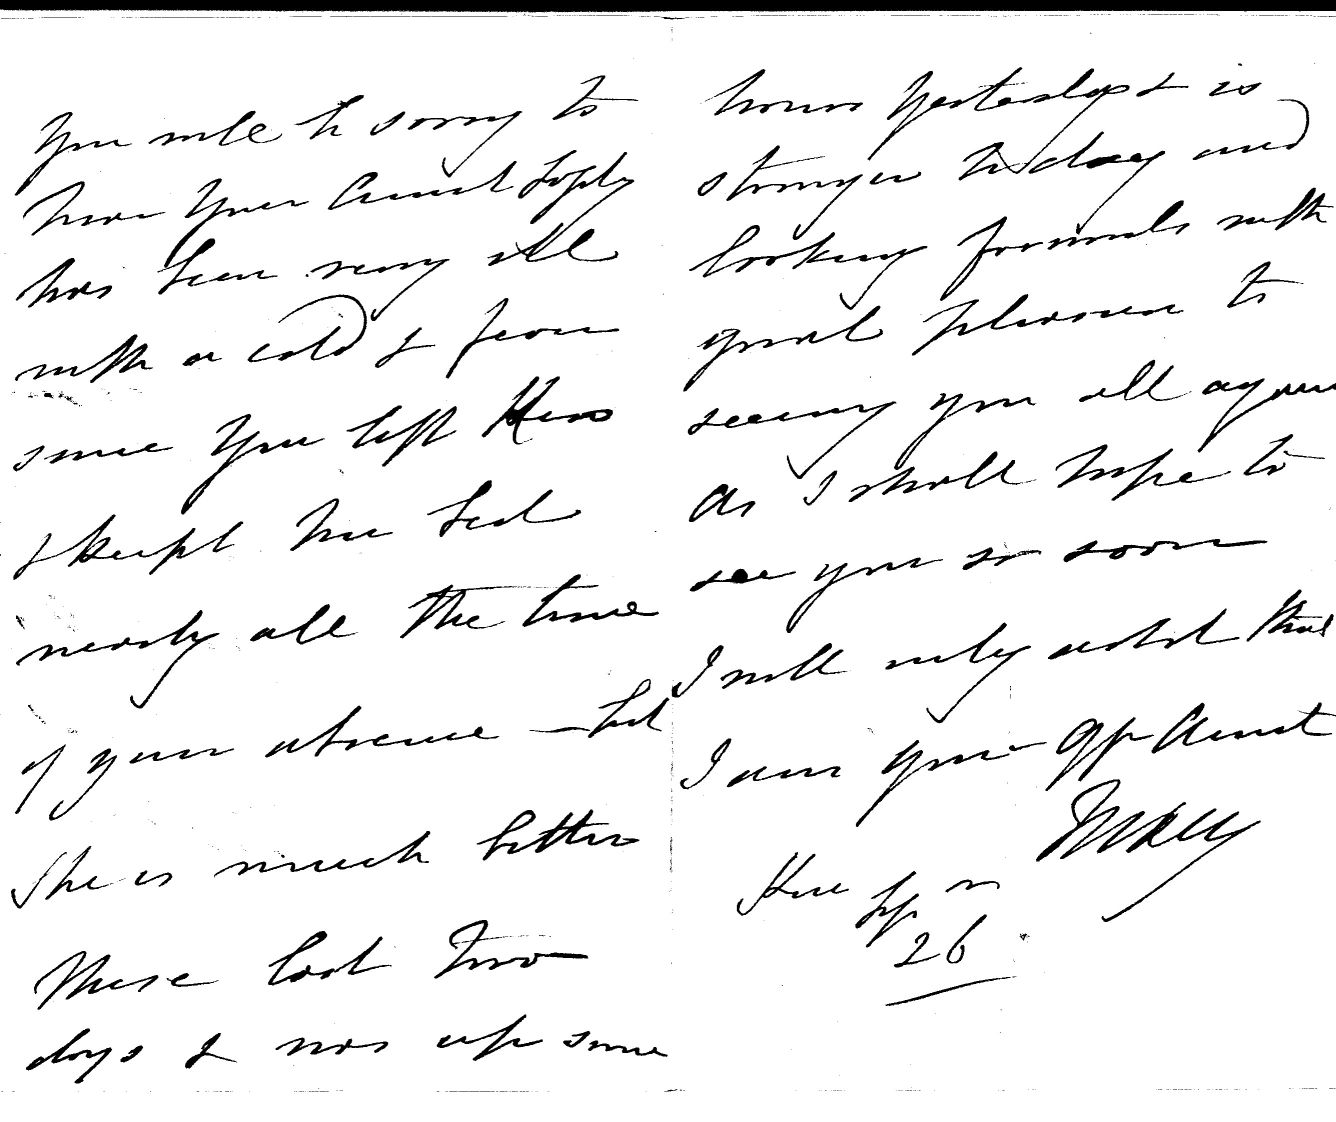 You will be sorry to
hear your Aunt Sophy
has been very ill
with a cold & fever
since you left Kew
& kept her bed
nearly all the time
of your absence — but
She is much better
these last two
days & was up some
hours yesterday & is
stronger to day and
looking forwards with
great pleasure to
seeing you all again
As I shall hope to
see you so soon
I will only add that
I am your Aff Aunt
Mary
Kew Sep m
26